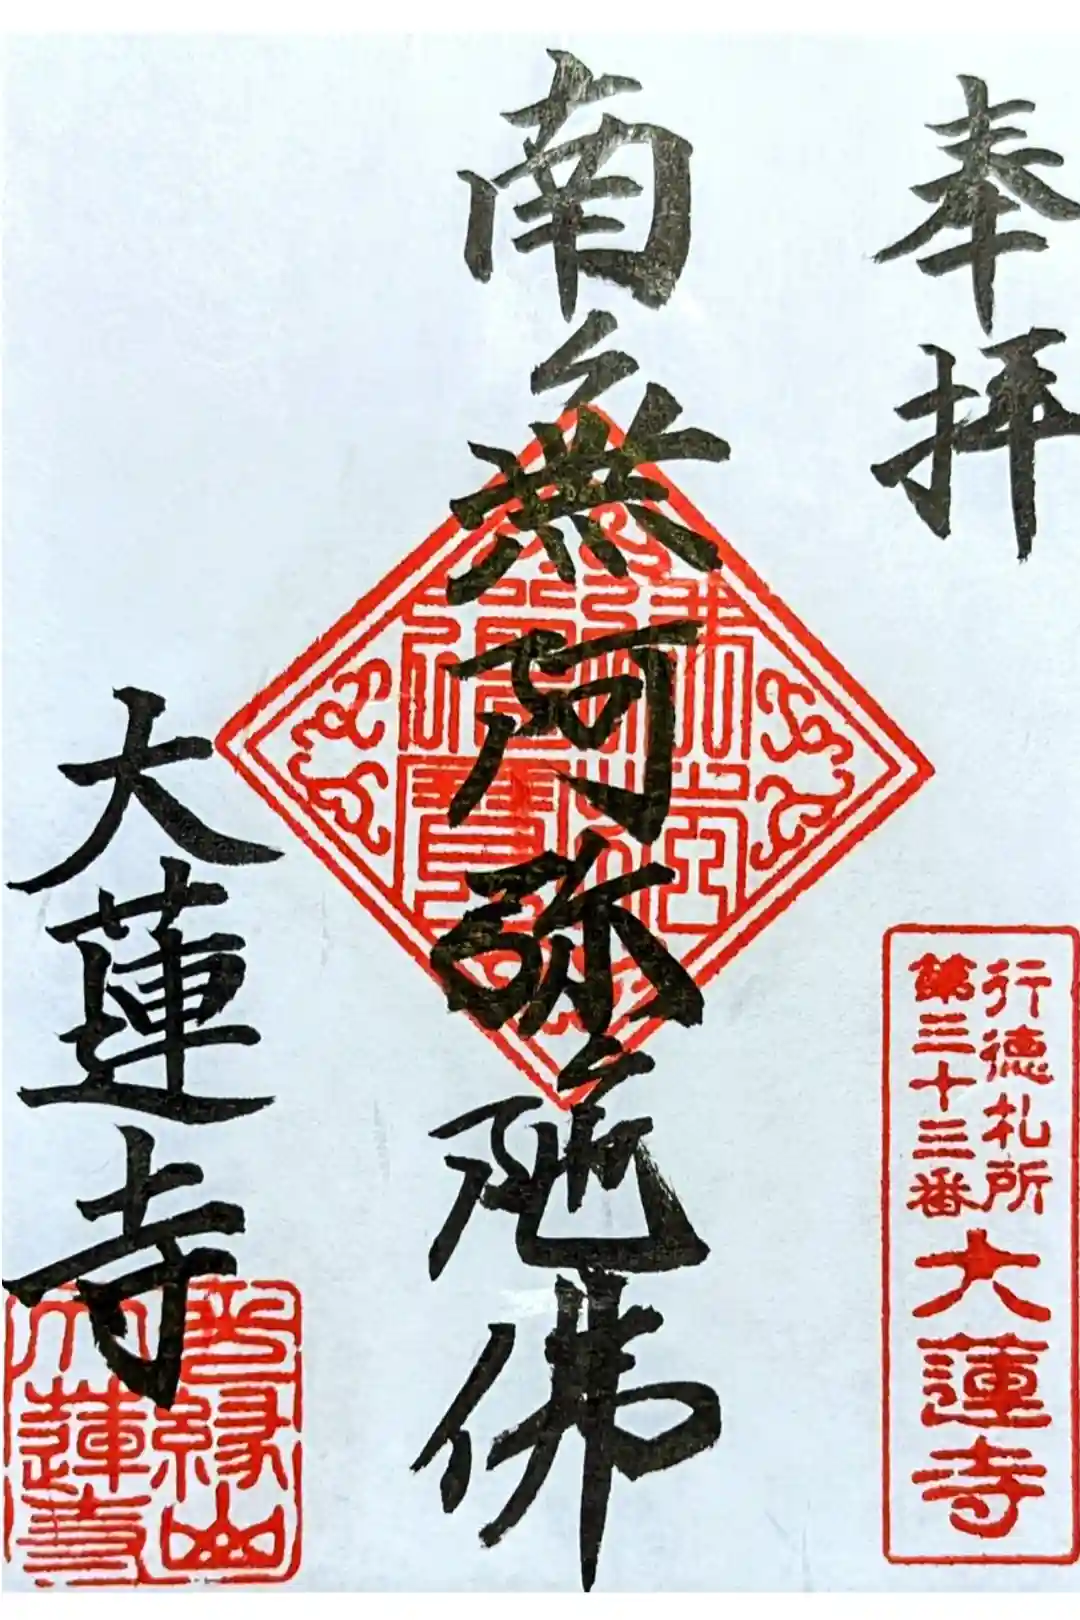 奉拝
行徳札所
第三十三番
大蓮寺
南無阿弥陀佛
佛法僧寶
大蓮寺
縁山
大蓮寺